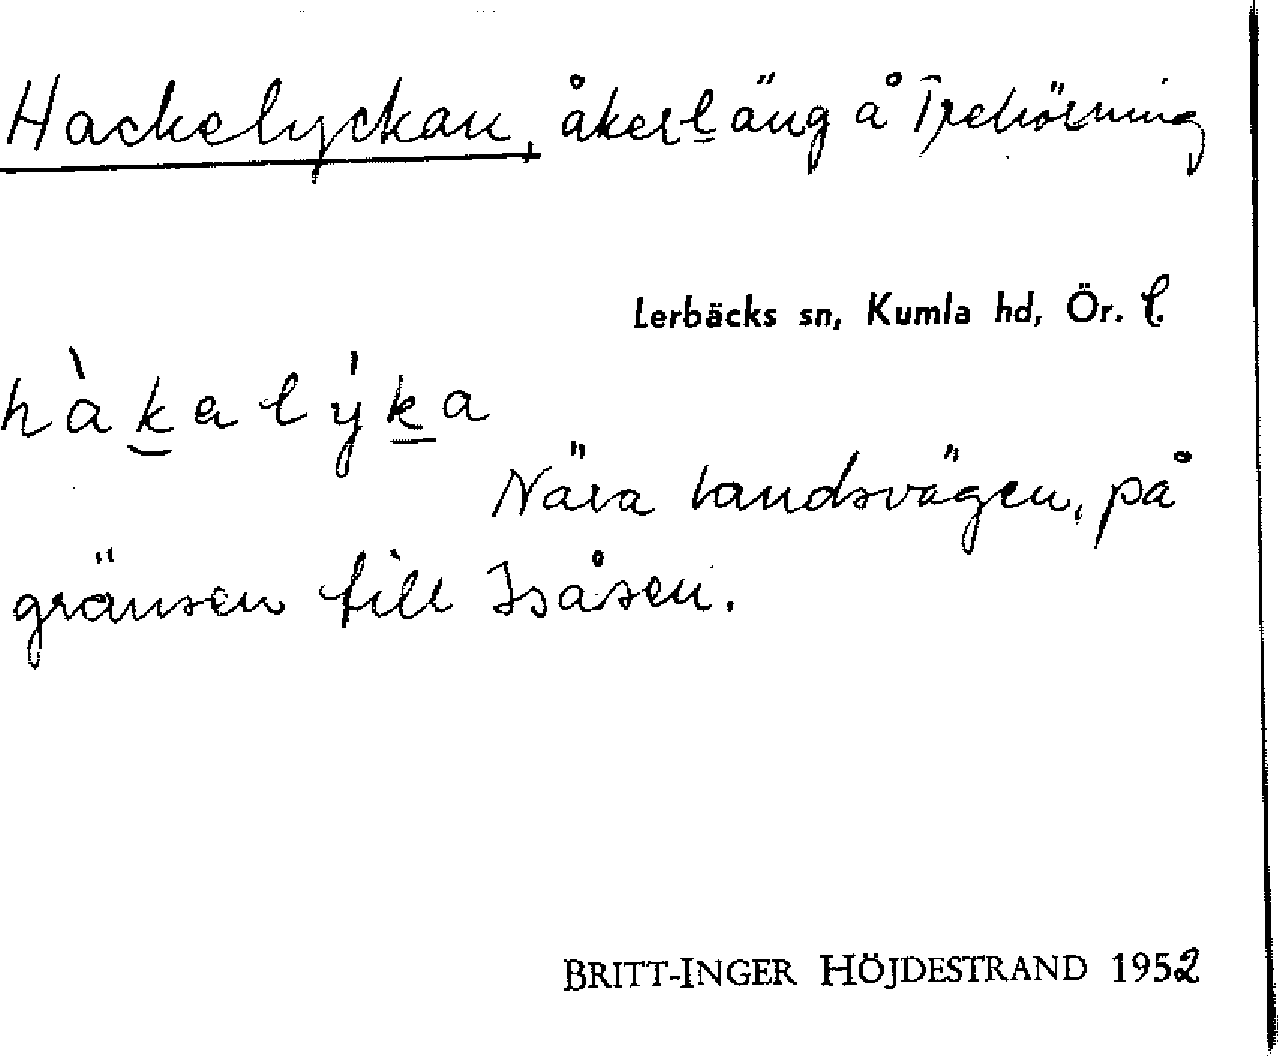 Hackelyckan, åker l äng å Trehörning
Lerbäcks sn, Kumla hd, Ör. l.
hàkalýka
Nära landsvägen, på
gränsen till Isåsen.
BRITT-INGER HÖJDESTRAND 1952